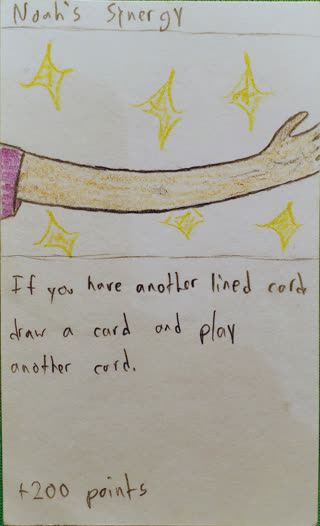 Noah's Synergy
If you have another lined card
draw a card and play
another card.
+200 points